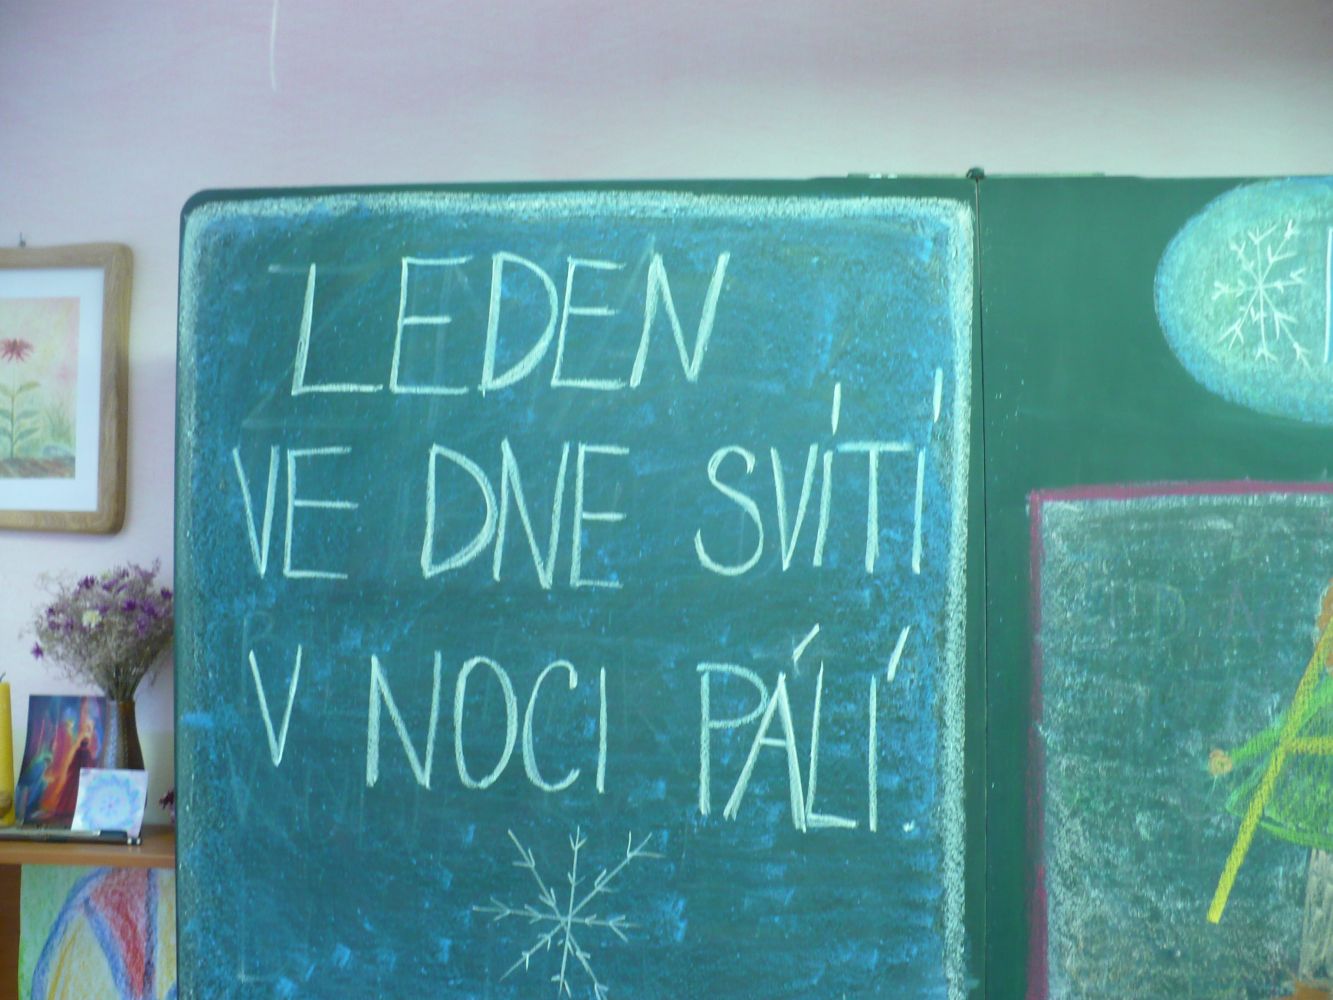 LEDEN
VE DNE SVÍTÍ
V NOCI PÁLÍ.